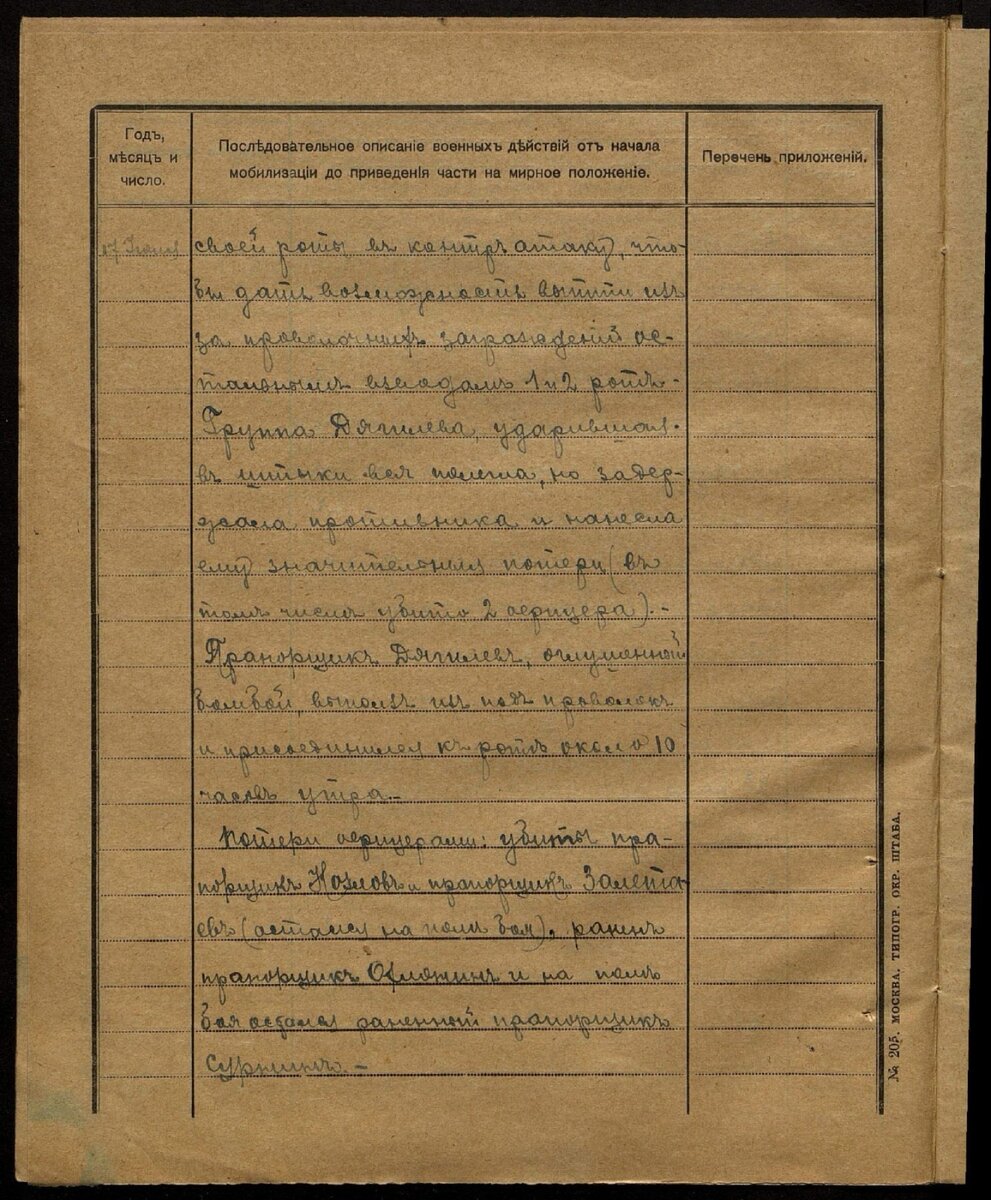 Годъ,
мѣсяцъ и
число.
Послѣдовательное описаніе военныхъ дѣйствій отъ начала
мобилизаціи до приведенія части на мирное положеніе.
Перечень приложеній.
своей роты въ контръ атаку, что-
бы дать возможность выйти изъ
за проволочныхъ загражденій ос-
тальнымъ взводамъ 1 и 2 ротъ.-
Группа Дягилева, ударившая
въ штыки вся полегла, но задер-
жала противника и нанесла
ему значительныя потери (въ
томъ числѣ убито 2 офицера).-
Прапорщикъ Дягилевъ, оглушенный
бомбой, выползъ изъ подъ проволокъ
и присоединился къ ротѣ около 10
часовъ утра.-
Потери офицерами: убиты пра-
порщикъ Козловъ и прапорщикъ Залета-
евъ (остался на полѣ боя), раненъ
прапорщикъ и на полѣ
боя остался раненный прапорщикъ